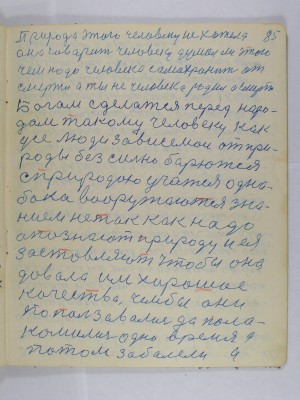 Природа этого человеку не хотела 85
она говарит человеку думал ли этого
чем надо человека самахранит от
смерти а ты не человека родил а смерть
Богам сделатся перед наро-
дам такому человеку как
усе люди зависемои от при-
роды без силно барются
с природою учатся одно-
бока вооружаются зна-
нием не так как надо
апознают природу и ея
заставляют чтобы она
давала им хорошие
качества, чтобы ани
попользавались да пола-
комились одно время а
потом забалели я